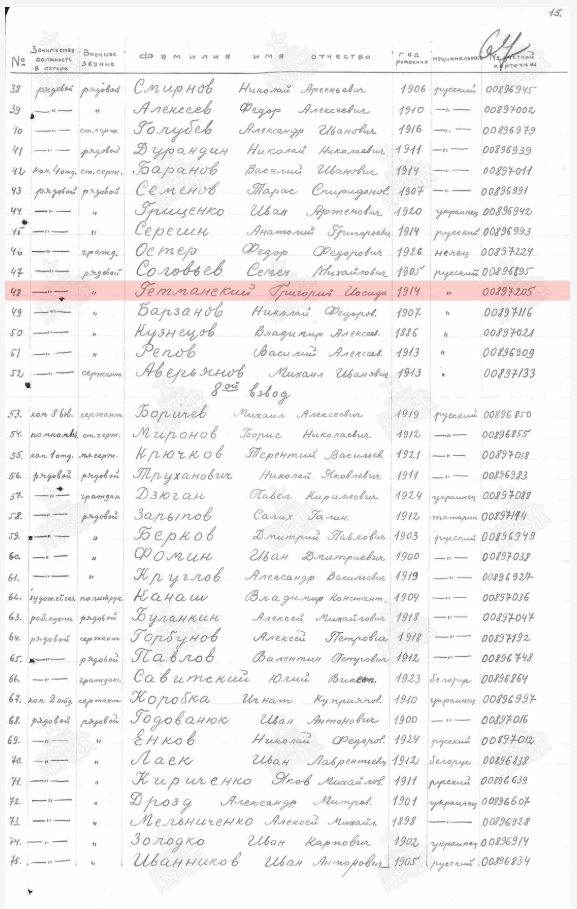 15.
64
№ Занимаемая должность в лагере Военное звание фамилия имя отчество год рождения национальн. № учетной карточки
38 рядовой рядовой Смирнов Николай Арсеньевич 1906 русский 00896945
39 —"— —"— Алексеев Федор Алексеевич 1910 —"— 00897002
40 —"— ст.серж. Голубев Александр Иванович 1916 —"— 00896979
41 —"— рядовой Дурандин Николай Николаевич 1911 —"— 00896939
42 ком 4 отд. ст.серж. Баранов Василий Иванович 1914 —"— 00897011
43 рядовой рядовой Семенов Тарас Спиридонов. 1907 —"— 00896991
44 —"— " Грищенко Иван Артемович 1920 украинец 00896942
45 —"— " Серегин Анатолий Григорьев 1914 русский 00896993
46 —"— гражд. Остер Федор Федорович 1926 немец 00897224
47 —"— рядовой Соловьев Семен Михайлович 1905 русский 00896895
48 —"— " Гетманский Григорий Иосифо 1914 " 00897205
49 —"— " Барзанов Николай Федоров. 1907 " 00897116
50 —"— " Кузнецов Владимир Алексеев. 1886 " 00897021
51 —"— " Репов Василий Алексеев. 1913 " 00896909
52 —"— сержант Аверьянов Михаил Иванович 1913 " 00897133
8ой взвод
53. ком 8 вз. сержант Боричев Михаил Алексеевич 1919 русский 00896850
54. помкомвз. ст.серж. Миронов Борис Николаевич 1912 —"— 00896855
55. ком 1 отд. мл.серж. Крючков Терентий Васильев 1921 —"— 00897018
56. рядовой рядовой Труханович Николай Яковлевич 1911 —"— 00896983
57. —"— граждан Дзюган Павел Кириллович 1924 украинец 00897088
58. —"— рядовой Зарыпов Салих Галин. 1912 татарин 00897194
59. —"— " Берков Дмитрий Павлович 1903 русский 00896949
60. —"— " Фомин Иван Дмитриевич 1900 —"— 00897038
61. —"— " Круглов Александр Васильевич 1919 —"— 00896927
62. политрук Канаш Владимир Констант. 1904 —"— 00897036
63. раб.кухни рядовой Буланкин Алексей Михайлович 1918 —"— 00897047
64. рядовой сержант Горбунов Алексей Петрович 1918 —"— 00897192
65. —"— рядовой Павлов Валентин Петрович 1912 —"— 00896748
66. —"— граждан. Савитский Юлий Викент. 1923 белорус 00896864
67. ком 2 отд. сержант Коробка Игнат Куприянов. 1910 украинец 00896997
68. рядовой рядовой Годованюк Иван Антонович 1900 —"— 00897016
69. —"— " Енков Николай Федоров. 1924 русский 00897012
70. —"— " Лаек Иван Лаврентиев 1912 белорус 00896838
71. —"— " Кириченко Яков Михайлов. 1911 русский 00896639
72. —"— " Дрозд Александр Митров. 1901 украинец 00896607
73. —"— " Мельниченко Алексей Михайл 1898 —"— 00896928
74. —"— " Золодко Иван Карпович 1902 украинец 00896914
75. —"— " Иванников Иван Анторович 1905 русский 00896834